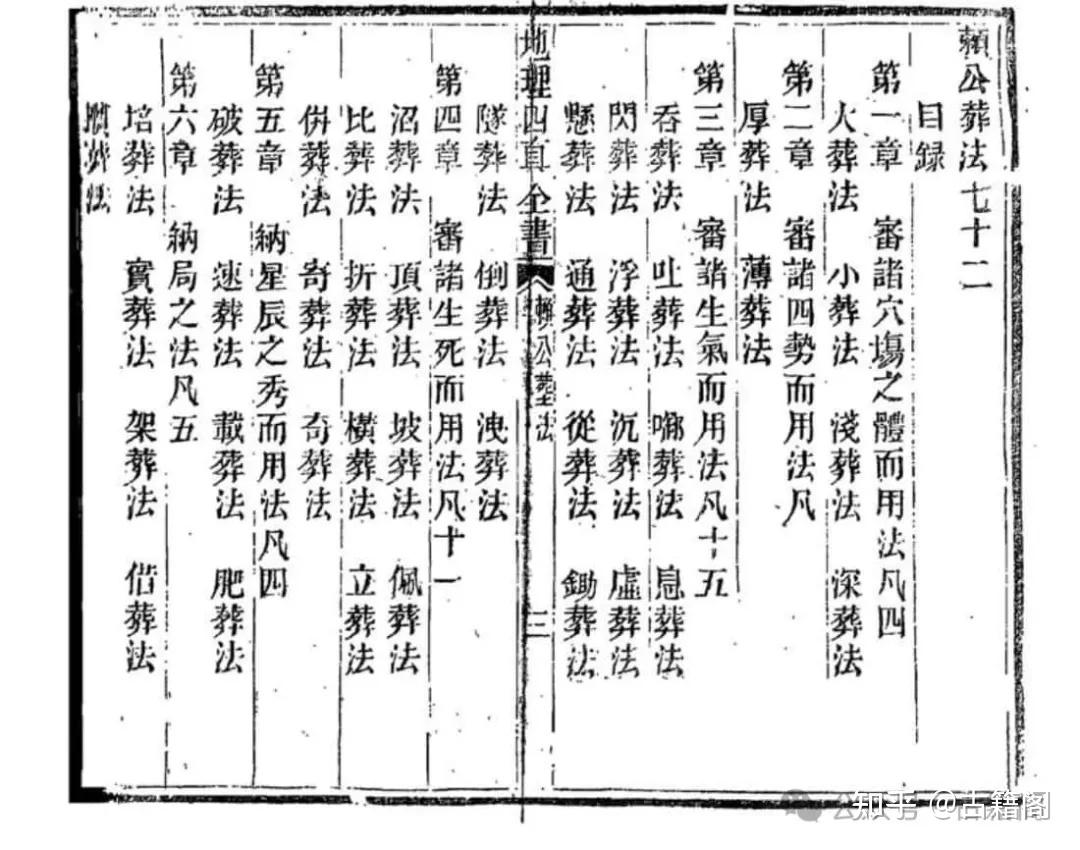 賴公葬法七十二
目録
第一章 審諸穴塲之體而用法凡四
大葬法 小葬法 淺葬法 深葬法
第二章 審諸四勢而用法凡
厚葬法 薄葬法
第三章 審諸生氣而用法凡十五
吞葬法 吐葬法 葬法 息葬法
閃葬法 浮葬法 沉葬法 虛葬法
懸葬法 通葬法 從葬法 鋤葬法
地理四真全書 賴公葬法 三
隧葬法 倒葬法 洩葬法
第四章 審諸生死而用法凡十一
沼葬法 頂葬法 坡葬法 佩葬法
比葬法 折葬法 橫葬法 立葬法
併葬法 寄葬法 奇葬法
第五章 納星辰之秀而用法凡四
破葬法 速葬法 載葬法 肥葬法
第六章 納局之法凡五
培葬法 實葬法 架葬法 借葬法
葬法
知乎 @古籍阁